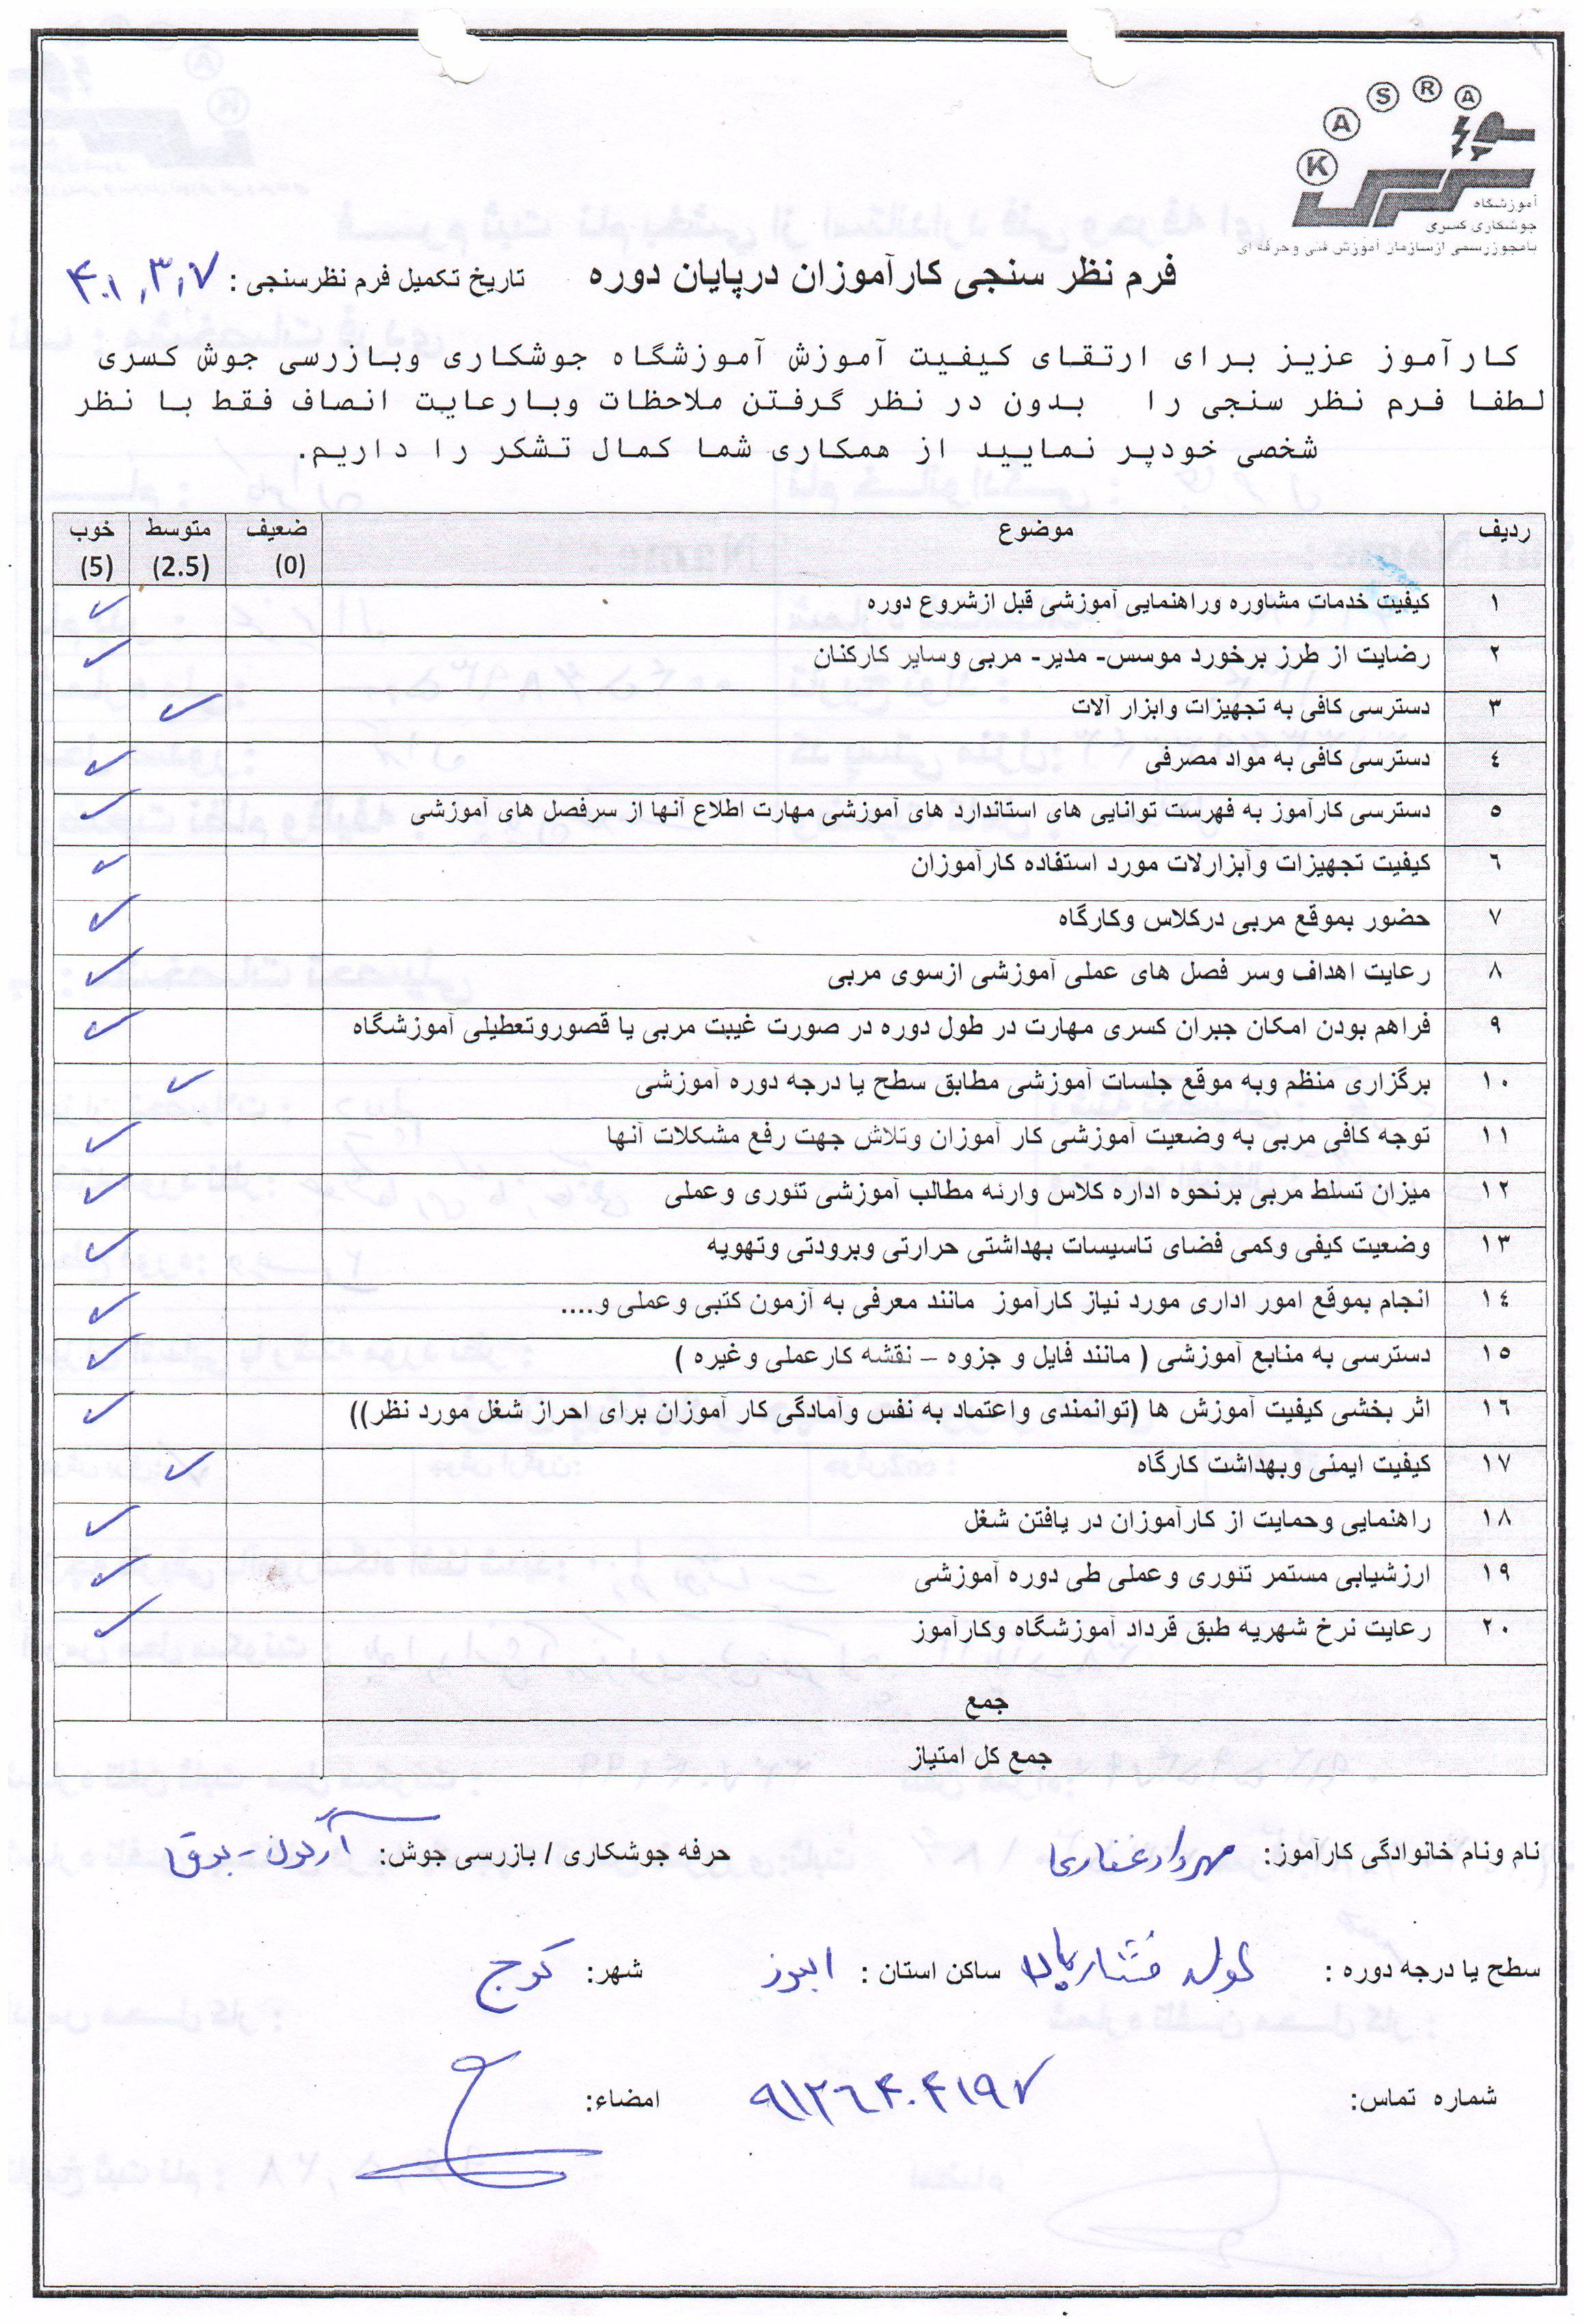 K A S R A
آموزشگاه
جوشکاری کسری
بامجوزرسمی ازسازمان آموزش فنی وحرفه ای
فرم نظر سنجی کارآموزان درپایان دوره تاریخ تکمیل فرم نظرسنجی : ۴۰۱,۳,۷
کارآموز عزیز برای ارتقای کیفیت آموزش آموزشگاه جوشکاری وبازرسی جوش کسری
لطفا فرم نظر سنجی را بدون در نظر گرفتن ملاحظات وبارعایت انصاف فقط با نظر
شخصی خودپر نمایید از همکاری شما کمال تشکر را داریم.
ردیف موضوع ضعیف (0) متوسط (2.5) خوب (5)
۱ کیفیت خدمات مشاوره وراهنمایی آموزشی قبل ازشروع دوره ✓
۲ رضایت از طرز برخورد موسس- مدیر- مربی وسایر کارکنان ✓
۳ دسترسی کافی به تجهیزات وابزار آلات ✓
٤ دسترسی کافی به مواد مصرفی ✓
٥ دسترسی کارآموز به فهرست توانایی های استاندارد های آموزشی مهارت اطلاع آنها از سرفصل های آموزشی ✓
٦ کیفیت تجهیزات وآبزارلات مورد استفاده کارآموزان ✓
۷ حضور بموقع مربی درکلاس وکارگاه ✓
۸ رعایت اهداف وسر فصل های عملی آموزشی ازسوی مربی ✓
۹ فراهم بودن امکان جبران کسری مهارت در طول دوره در صورت غیبت مربی یا قصوروتعطیلی آموزشگاه ✓
۱۰ برگزاری منظم وبه موقع جلسات آموزشی مطابق سطح یا درجه دوره آموزشی ✓
۱۱ توجه کافی مربی به وضعیت آموزشی کار آموزان وتلاش جهت رفع مشکلات آنها ✓
۱۲ میزان تسلط مربی برنحوه اداره کلاس وارئه مطالب آموزشی تئوری وعملی ✓
۱۳ وضعیت کیفی وکمی فضای تاسیسات بهداشتی حرارتی وبرودتی وتهویه ✓
۱٤ انجام بموقع امور اداری مورد نیاز کارآموز مانند معرفی به آزمون کتبی وعملی و.... ✓
۱٥ دسترسی به منابع آموزشی ( مانند فایل و جزوه – نقشه کارعملی وغیره ) ✓
۱٦ اثر بخشی کیفیت آموزش ها (توانمندی واعتماد به نفس وآمادگی کار آموزان برای احراز شغل مورد نظر)) ✓
۱۷ کیفیت ایمنی وبهداشت کارگاه ✓
۱۸ راهنمایی وحمایت از کارآموزان در یافتن شغل ✓
۱۹ ارزشیابی مستمر تئوری وعملی طی دوره آموزشی ✓
۲۰ رعایت نرخ شهریه طبق قرداد آموزشگاه وکارآموز ✓
جمع
جمع کل امتیاز
نام ونام خانوادگی کارآموز: مهرداد غفاری حرفه جوشکاری / بازرسی جوش: آرگون - برق
سطح یا درجه دوره : لوله فشار بالا ساکن استان : البرز شهر: کرج
شماره تماس: ۹۱۲٦۴۰۴۱۹۷ امضاء: